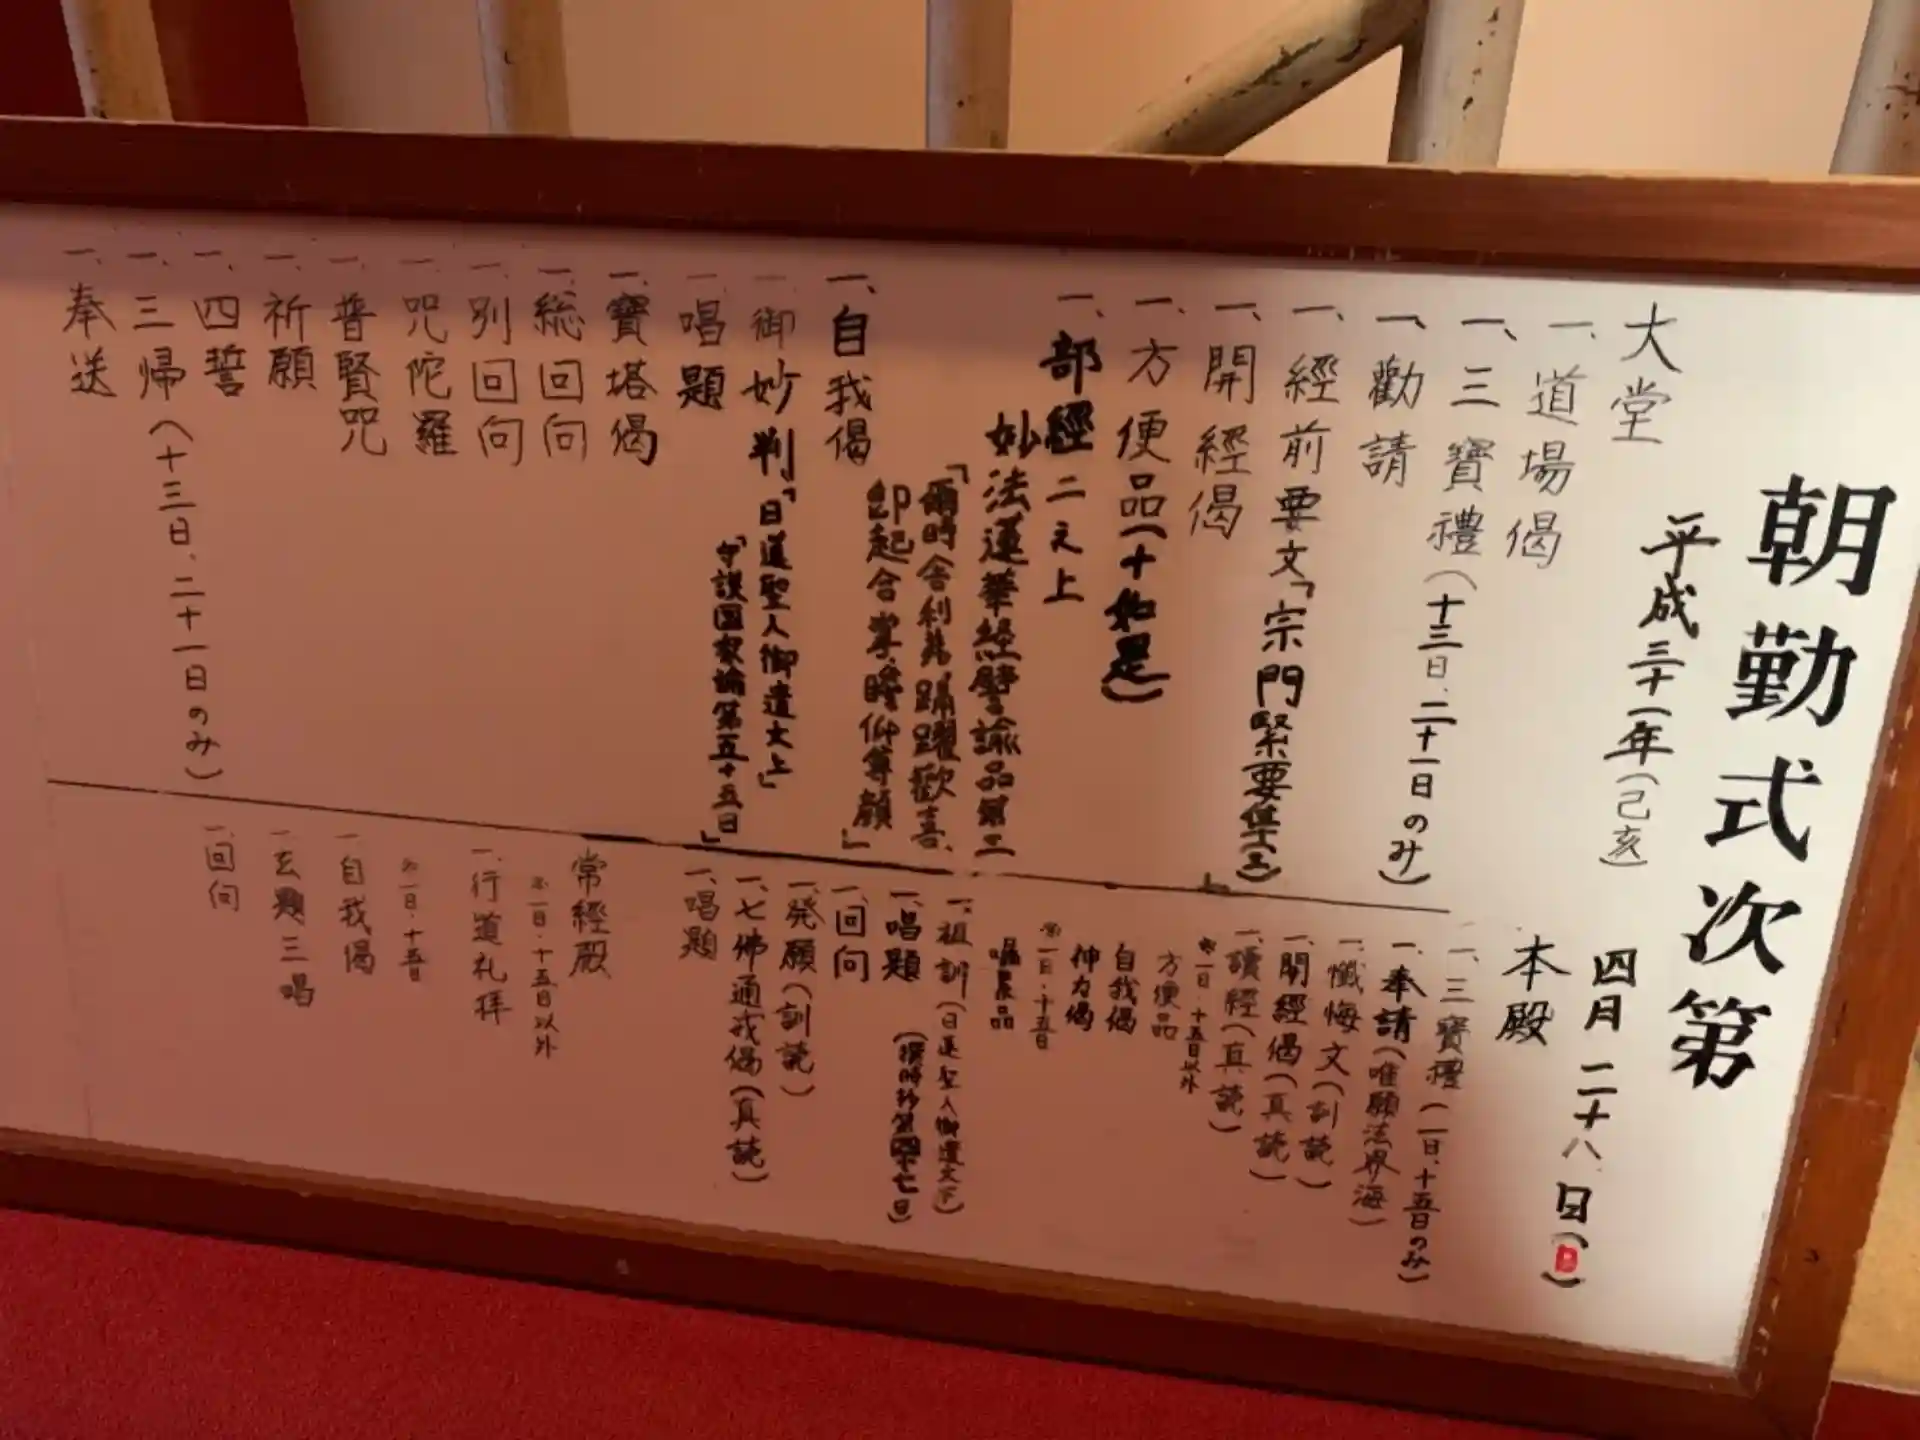 朝勤式次第
平成三十一年(己亥)
四月二十八日(日)
大堂
一、道場偈
一、三寶禮(十三日、二十一日のみ)
一、勸請
一、經前要文「宗門緊要集(三)」
一、開經偈
一、方便品(十如是)
一、部經二之上
妙法蓮華経譬諭品第三
「爾時舎利弗、踊躍歓喜、
即起合掌、瞻仰尊顔」
一、自我偈
一、御妙判「日蓮聖人御遺文上」
「守護国家論第五十五日」
一、唱題
一、寶塔偈
一、総回向
一、別回向
一、咒陀羅
一、普賢咒
一、祈願
一、四誓
一、三帰(十三日、二十一日のみ)
一、奉送
本殿
一、三寶禮(一日、十五日のみ)
一、奉請(唯願法界海)
一、懺悔文(訓読)
一、開經偈(真読)
一、讀經(真読)
※一日・十五日以外
方便品
自我偈
神力偈
※一日・十五日
嘱累品
一、祖訓(日蓮聖人御遺文下)
(撰時抄第四十七日)
一、唱題
一、回向
一、発願(訓読)
一、七佛通戒偈(真読)
一、唱題
常經殿
※一日・十五日以外
一、行道礼拝
※一日・十五日
一、自我偈
一、玄題三唱
一、回向